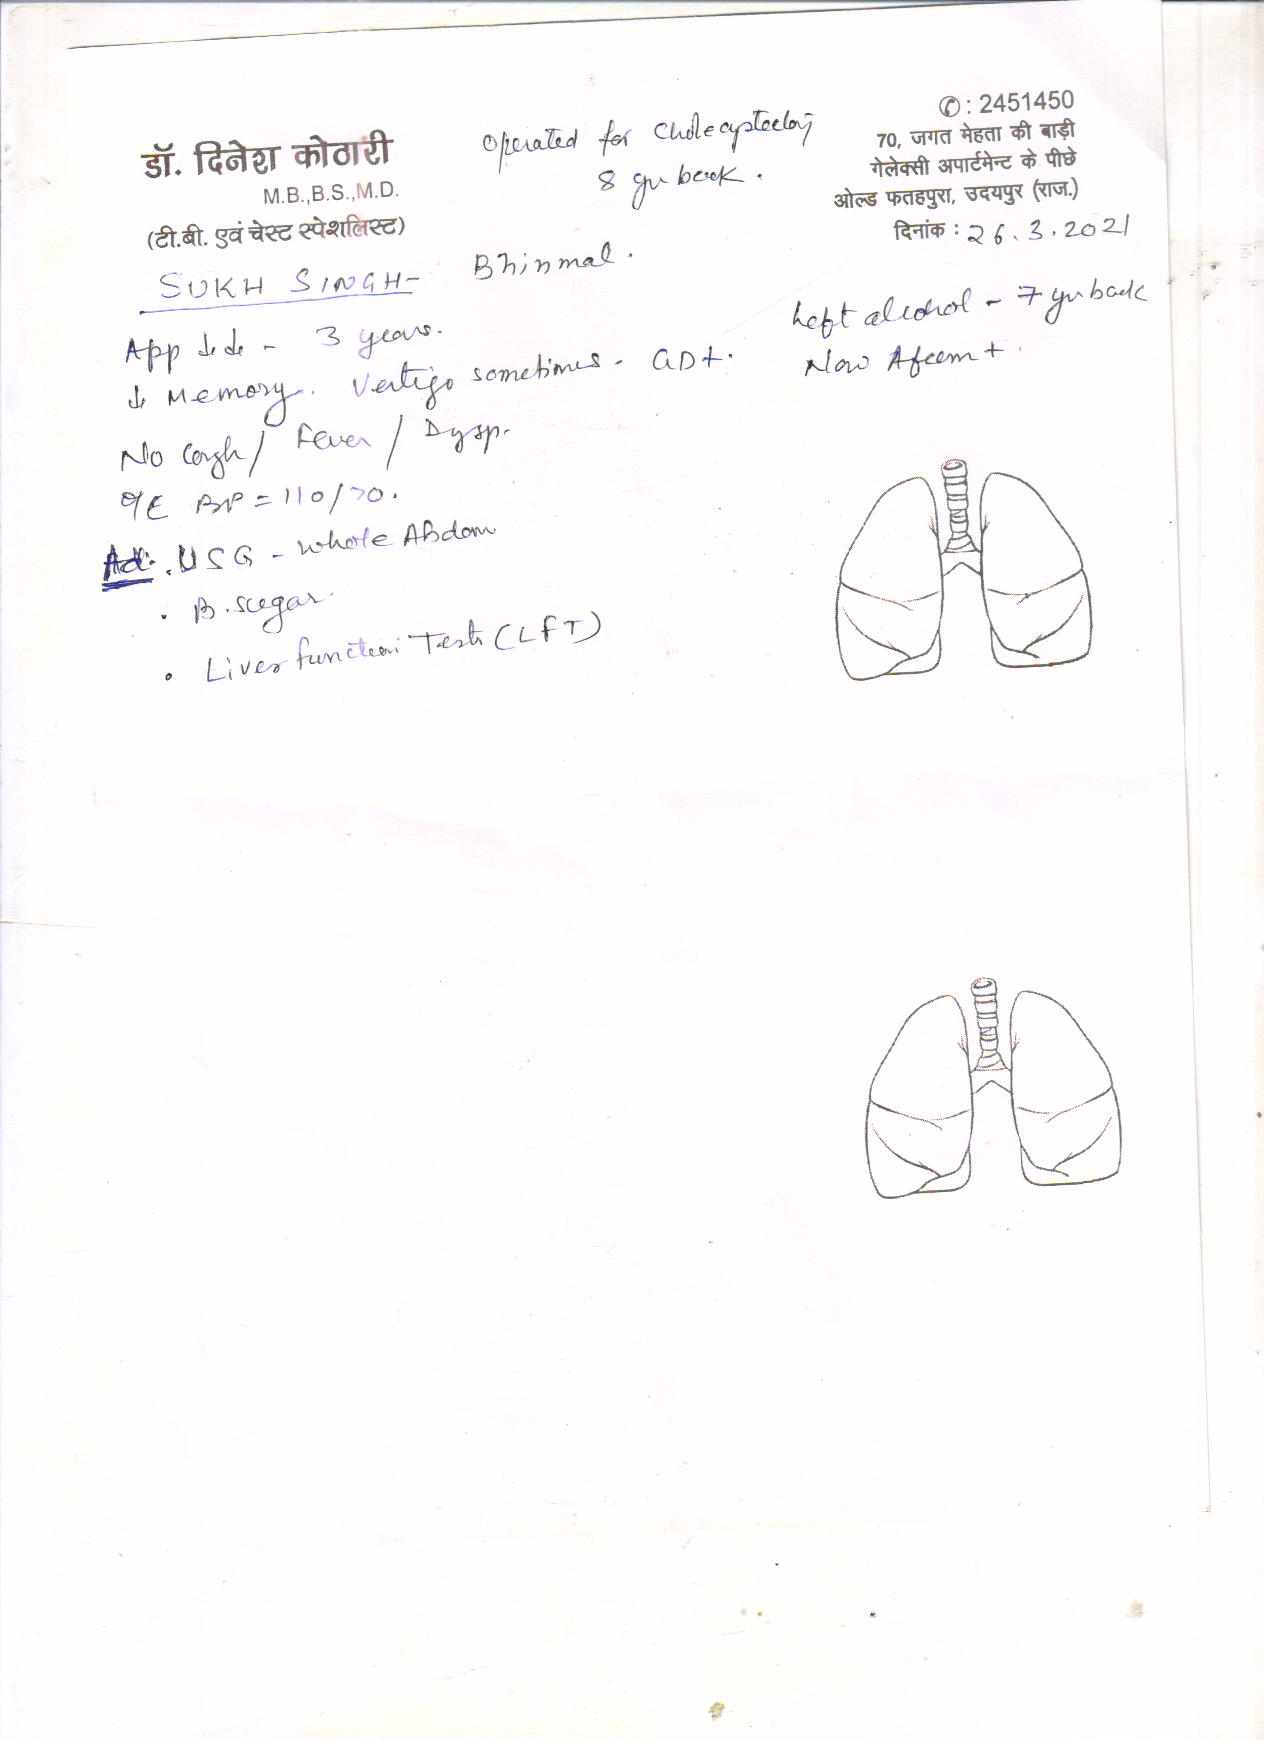 ✆ : 2451450
डॉ. दिनेश कोठारी
M.B.,B.S.,M.D.
(टी.बी. एवं चेस्ट स्पेशलिस्ट)
Operated for Cholecystectomy
8 yr back.
70, जगत मेहता की बाड़ी
गेलेक्सी अपार्टमेन्ट के पीछे
ओल्ड फतहपुरा, उदयपुर (राज.)
दिनांक : 26.3.2021
SUKH SINGH- Bhinmal.
Left alcohol - 7 yr back
Now Afeem +.
App ↓↓ - 3 years.
↓ Memory. Vertigo sometimes - GD+.
No Cough/ Fever / Dysp.
O/E BP = 110/70.
Ad: . USG - Whole Abdom
. B. sugar.
. Liver function Tests (LFT)